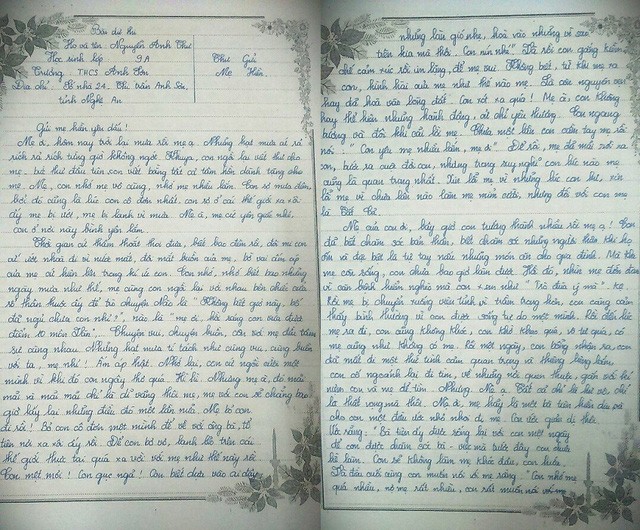 Bài dự thi
Họ và tên: Nguyễn Anh Thư
Học sinh lớp 9A
Trường: THCS Anh Sơn
Địa chỉ: Số nhà 24. Thị trấn Anh Sơn,
tỉnh Nghệ An
Thư Gửi
Mẹ Hiền.
Gửi mẹ thân yêu dấu!
Mẹ ơi, hôm nay trời lại mưa rồi mẹ ạ. Những hạt mưa cứ rả
rích rả rích từng giờ không ngớt. Khuya, con ngồi lại viết thư cho
mẹ. Bức thư đầu tiên con viết bằng tất cả tâm hồn dành tặng cho
mẹ. Mẹ, con nhớ mẹ vô cùng, nhớ mẹ nhiều lắm. Con sợ mưa đêm,
bởi đó cũng là lúc con cô đơn nhất. con sợ ở cái thế giới xa xôi
ấy mẹ bị ướt, mẹ bị lạnh vì mưa. Mẹ à, mẹ cứ yên giấc nhé,
con ở nơi này bình yên lắm.
Thời gian cứ thấm thoắt thoi đưa, biết bao đêm rồi, đôi mi con
cứ ướt nhoà đi vì nước mắt, đôi mắt buồn của mẹ, bờ vai ấm áp
của mẹ cứ hiện lên trong kí ức con. Con nhớ, nhớ biết bao những
ngày mưa như thế, mẹ cùng con ngồi lại với nhau bên chiếc cửa
sổ thân thuộc ấy để trò chuyện. Nào là "Không biết giờ này, bố
đã ngủ chưa con nhỉ?", nào là "mẹ ơi, hồi sáng con vừa được
điểm 10 môn Văn". Chuyện vui, chuyện buồn, câu nói mẹ đều tâm
sự cùng nhau. Những hạt mưa tí tách như cùng vui, cùng buồn
với ta, mẹ nhỉ! Ấm áp thật. Nhớ lại, con cứ ngồi cười một
mình vì khi đó con ngây thơ quá. Hì hì. Nhưng mẹ à, đó mãi
mãi và mãi mãi chỉ là dĩ vãng thôi mẹ, mẹ với con sẽ chẳng bao
giờ lấy lại những điều đó một lần nữa. Mẹ bỏ con
đi rồi! Bỏ con cô đơn một mình để về với ông bà, tổ
tiên nơi xa xôi ấy rồi. Để con bơ vơ, lạnh lẽo trên cái
thế giới thực tại quá xa vời với mẹ như thế này rồi.
Con mệt mỏi! Con gục ngã! Con biết dựa vào ai đây
những lúc gió nhẹ, hoà vào những vì sao
trên kia mà thôi. Con nín nhé". Là rồi con gắng kiềm
chế cảm xúc rồi im lặng, để mẹ vui. Không biết, từ khi mẹ xa
con, hình hài của mẹ như thế nào mẹ. Là còn nguyên vẹn
hay đã hoà vào lòng đất. Con xót xa quá! Mẹ à, con không
hay thể hiện những hành động, cử chỉ yêu thương. Con ngang
bướng và đôi khi cãi lời mẹ. Chưa một lần con cầm tay mẹ rồi
nói: "Con yêu mẹ nhiều lắm, mẹ ơi". Để rồi, mẹ đã mãi rời xa
con, bứt ra cuộc đời con, nhưng trong suy nghĩ con lúc nào mẹ
cũng là quan trọng nhất. Xin lỗi mẹ vì những lúc con hư, xin
lỗi mẹ vì chưa lần nào làm mẹ mỉm cười, nhưng đối với con mẹ
là Tất Cả.
Mẹ của con ơi, bây giờ con trưởng thành nhiều rồi mẹ ạ! Con
đã biết chăm sóc bản thân, biết chăm sóc những người thân khi họ
ốm và đặc biệt là tự tay nấu những món ăn cho gia đình. Mà khi
mẹ còn sống, con chưa bao giờ làm được. Hồi đó, nhìn mẹ đớn đau
vì căn bệnh hiểm nghèo mà con xem như "Trò đùa ý mà". Kệ.
Rồi mẹ bị chuyển xuống viện tỉnh vì trầm trọng hơn, con càng cảm
thấy bình thường vì con được sống tự do một mình. Rồi đến lúc
mẹ ra đi, con cũng không khóc, con khờ khạo quá, vô tư quá, có
mẹ cũng như không có mẹ. Rồi một ngày, con bỗng nhận ra, con
đã mất đi một thứ tình cảm quan trọng và thiêng liêng lắm,
con cố ngoảnh lại đi tìm, về những nơi quen thuộc, gắn với kỉ
niệm con và mẹ để tìm. Nhưng. Mẹ à. Tất cả chỉ là hư vô, chỉ
là thất vọng mà thôi. Mẹ ơi, mẹ hãy là một bà tiên hiền dịu và
cho con một điều ước nhỏ nhoi đi mẹ. Con ước quên đi thôi.
Ước rằng: "Bà tiên ấy được sống lại với con một ngày
để con được chăm sóc bà - việc mà trước đây con chưa
hề làm. Con sẽ không làm mẹ khóc đâu, con hứa.
Và đầu cuối cùng con muốn nói với mẹ rằng: "Con nhớ mẹ
quá nhiều, nợ mẹ rất nhiều, con rất muốn nói với mẹ